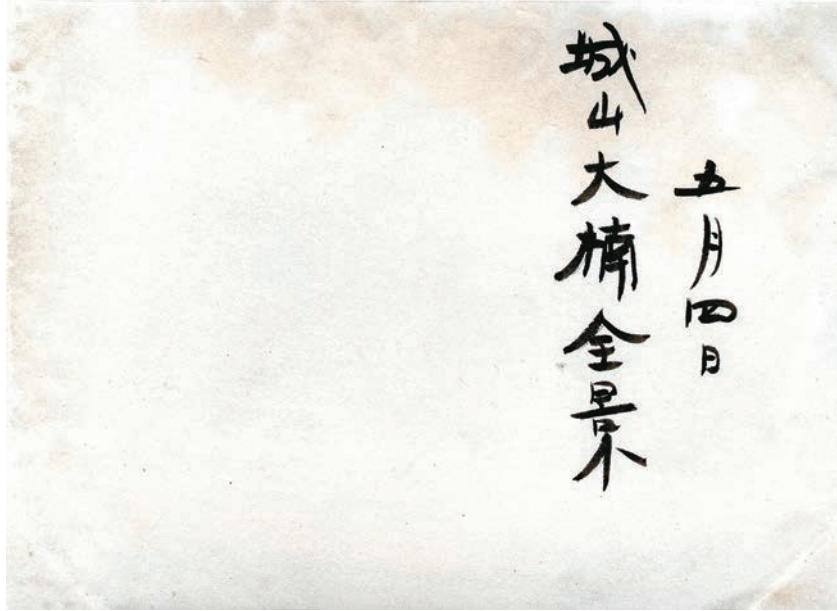 五月四日
城山大楠全景